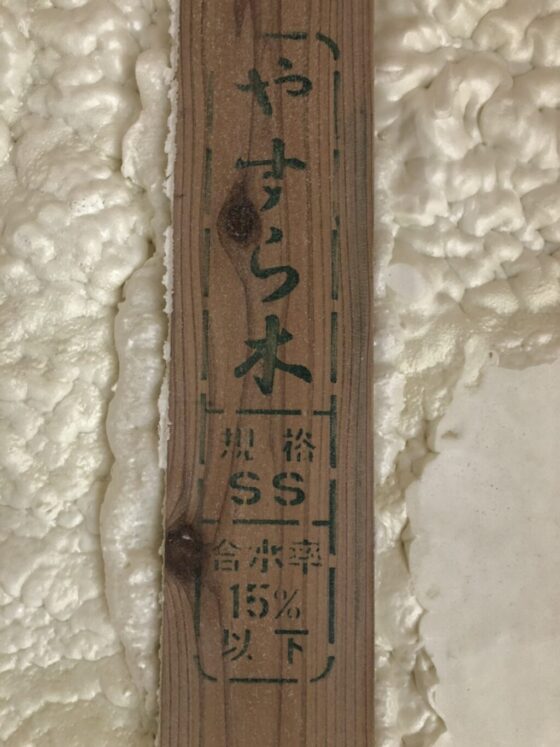 やすら木
規格
SS
含水率
15%
以下